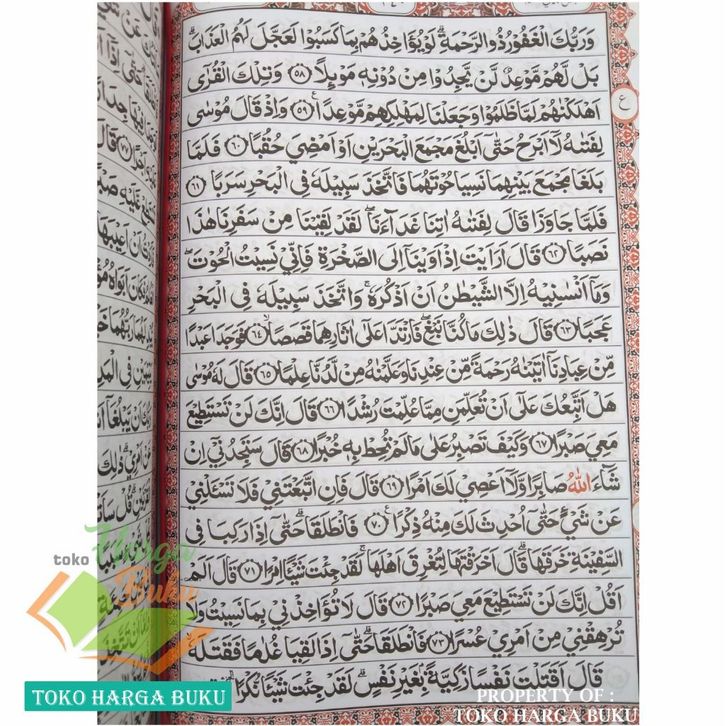 وَرَبُّكَ الْغَفُوْرُ ذُو الرَّحْمَةِ ۗ لَوْ يُؤَاخِذُهُمْ بِمَا كَسَبُوْا لَعَجَّلَ لَهُمُ الْعَذَابَ ۗ
بَلْ لَّهُمْ مَّوْعِدٌ لَّنْ يَّجِدُوْا مِنْ دُوْنِهٖ مَوْىِٕلًا ۝٥٨ وَتِلْكَ الْقُرٰٓى
اَهْلَكْنٰهُمْ لَمَّا ظَلَمُوْا وَجَعَلْنَا لِمَهْلِكِهِمْ مَّوْعِدًا ࣖ ۝٥٩ وَاِذْ قَالَ مُوْسٰى
لِفَتٰىهُ لَآ اَبْرَحُ حَتّٰٓى اَبْلُغَ مَجْمَعَ الْبَحْرَيْنِ اَوْ اَمْضِيَ حُقُبًا ۝٦٠ فَلَمَّا
بَلَغَا مَجْمَعَ بَيْنِهِمَا نَسِيَا حُوْتَهُمَا فَاتَّخَذَ سَبِيْلَهٗ فِى الْبَحْرِ سَرَبًا ۝٦١
فَلَمَّا جَاوَزَا قَالَ لِفَتٰىهُ اٰتِنَا غَدَاۤءَنَا ۖ لَقَدْ لَقِيْنَا مِنْ سَفَرِنَا هٰذَا
نَصَبًا ۝٦٢ قَالَ اَرَءَيْتَ اِذْ اَوَيْنَآ اِلَى الصَّخْرَةِ فَاِنِّيْ نَسِيْتُ الْحُوْتَ ۖ
وَمَآ اَنْسٰىنِيْهُ اِلَّا الشَّيْطٰنُ اَنْ اَذْكُرَهٗ ۚ وَاتَّخَذَ سَبِيْلَهٗ فِى الْبَحْرِ
عَجَبًا ۝٦٣ قَالَ ذٰلِكَ مَا كُنَّا نَبْغِ ۖ فَارْتَدَّا عَلٰٓى اٰثَارِهِمَا قَصَصًا ۝٦٤ فَوَجَدَا عَبْدًا
مِّنْ عِبَادِنَآ اٰتَيْنٰهُ رَحْمَةً مِّنْ عِنْدِنَا وَعَلَّمْنٰهُ مِنْ لَّدُنَّا عِلْمًا ۝٦٥ قَالَ لَهٗ مُوْسٰى
هَلْ اَتَّبِعُكَ عَلٰٓى اَنْ تُعَلِّمَنِ مِمَّا عُلِّمْتَ رُشْدًا ۝٦٦ قَالَ اِنَّكَ لَنْ تَسْتَطِيْعَ
مَعِيَ صَبْرًا ۝٦٧ وَكَيْفَ تَصْبِرُ عَلٰى مَا لَمْ تُحِطْ بِهٖ خُبْرًا ۝٦٨ قَالَ سَتَجِدُنِيْٓ اِنْ
شَاۤءَ اللّٰهُ صَابِرًا وَّلَآ اَعْصِيْ لَكَ اَمْرًا ۝٦٩ قَالَ فَاِنِ اتَّبَعْتَنِيْ فَلَا تَسْـَٔلْنِيْ
عَنْ شَيْءٍ حَتّٰٓى اُحْدِثَ لَكَ مِنْهُ ذِكْرًا ࣖ ۝٧٠ فَانْطَلَقَا ۗ حَتّٰٓى اِذَا رَكِبَا فِى
السَّفِيْنَةِ خَرَقَهَا ۗ قَالَ اَخَرَقْتَهَا لِتُغْرِقَ اَهْلَهَا ۚ لَقَدْ جِئْتَ شَيْـًٔا اِمْرًا ۝٧١ قَالَ اَلَمْ
اَقُلْ اِنَّكَ لَنْ تَسْتَطِيْعَ مَعِيَ صَبْرًا ۝٧٢ قَالَ لَا تُؤَاخِذْنِيْ بِمَا نَسِيْتُ وَلَا
تُرْهِقْنِيْ مِنْ اَمْرِيْ عُسْرًا ۝٧٣ فَانْطَلَقَا ۗ حَتّٰٓى اِذَا لَقِيَا غُلٰمًا فَقَتَلَهٗ ۙ
قَالَ اَقَتَلْتَ نَفْسًا زَكِيَّةً ۢ بِغَيْرِ نَفْسٍ ۗ لَقَدْ جِئْتَ شَيْـًٔا نُّكْرًا ۝٧٤
ع
toko Harga Buku
TOKO HARGA BUKU
PROPERTY OF :
TOKO HARGA BUKU